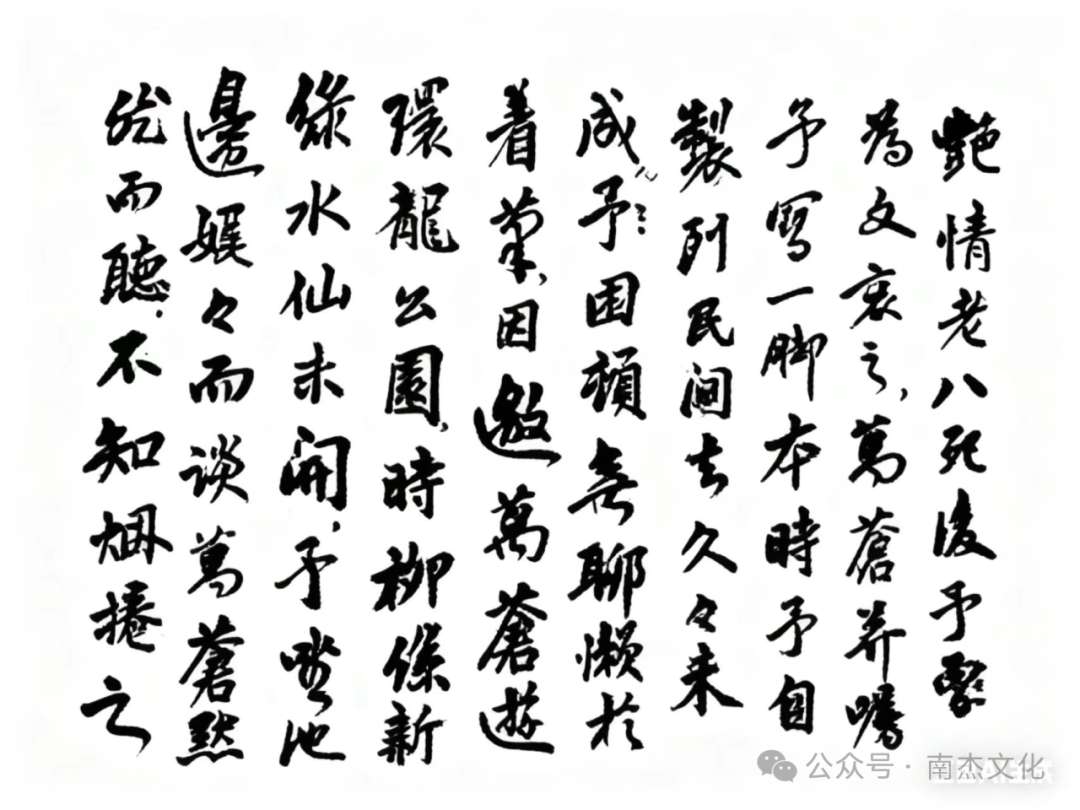 艷情老八死後予
為文哀之,萬蒼并囑
予寫一脚本時予自
製列民間去久々未
成,予困頓無聊懶於
着筆,因邀萬蒼遊
環龍公園,時柳條新
綠水仙未開,予坐池
邊娓々而談萬蒼默
然而聽,不知烟捲之
公众号·南杰文化